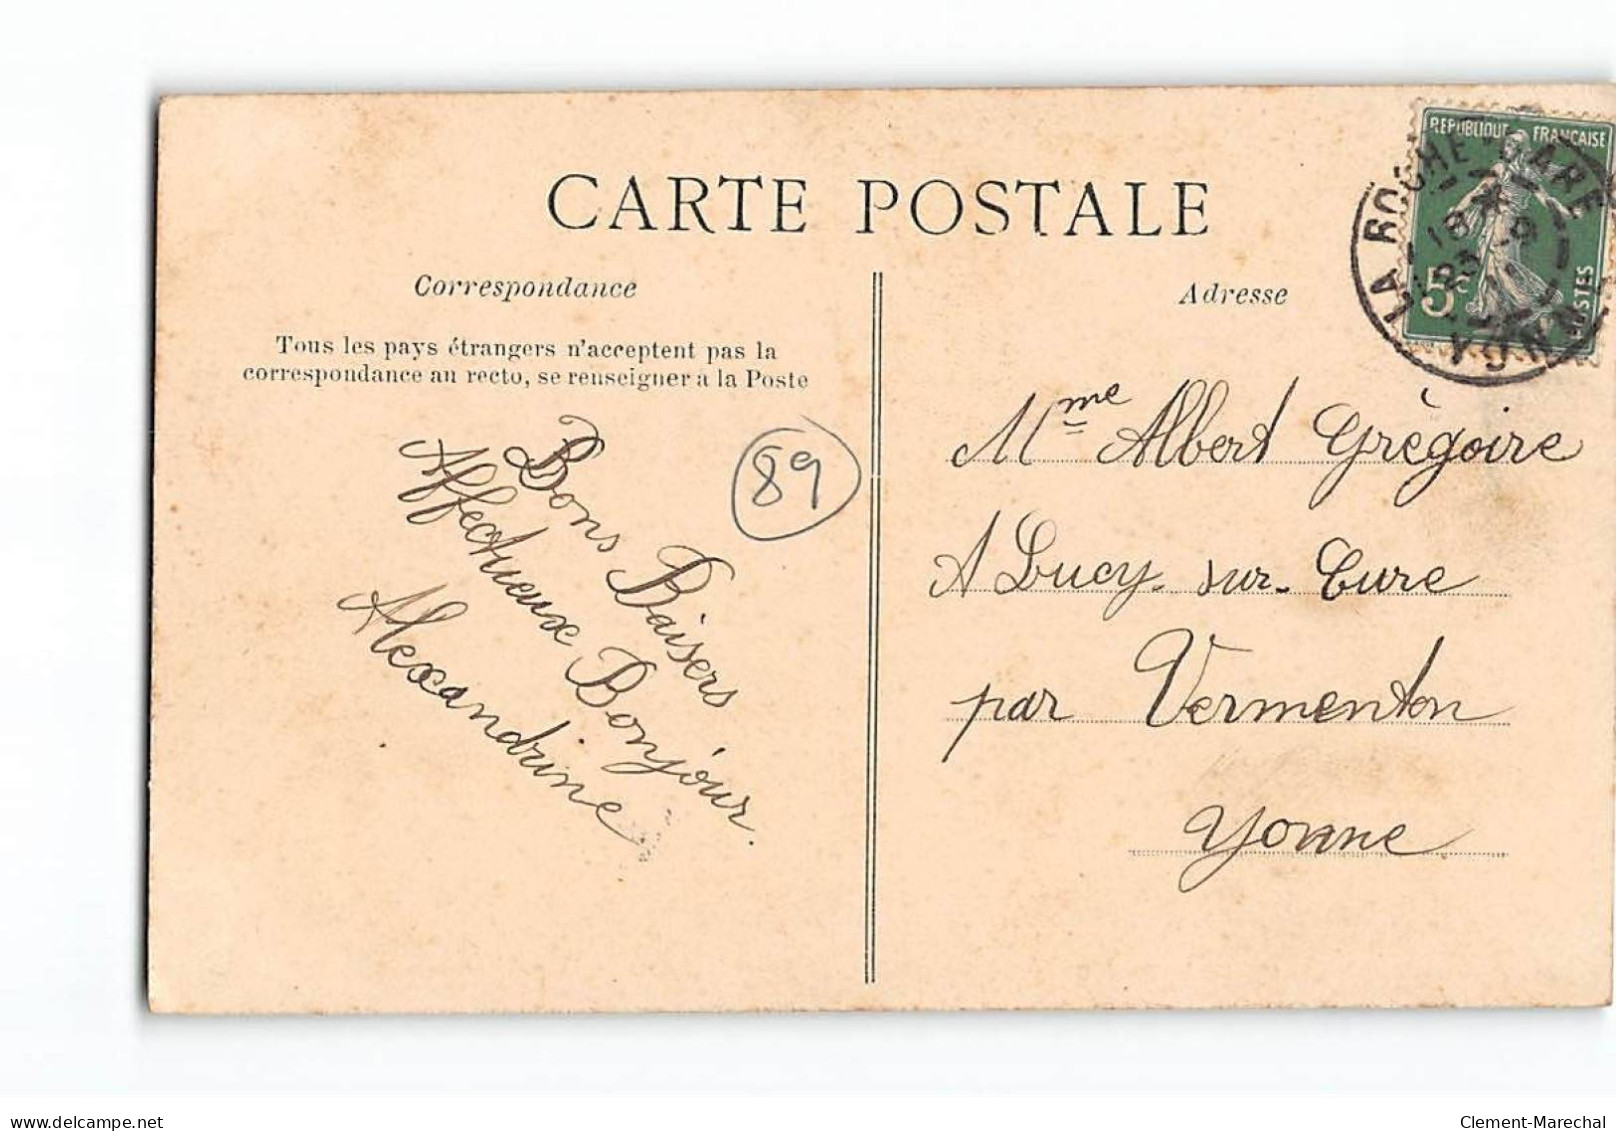 CARTE POSTALE
Correspondance
Tous les pays étrangers n'acceptent pas la
correspondance au recto, se renseigner à la Poste
Bons Baisers
Affectueux Bonjour.
Alexandrine
89
Adresse
RÉPUBLIQUE FRANÇAISE
5c
POSTES
LA ROCHE
YONNE
Mme Albert Grégoire
A Lucy-sur-Cure
par Vermenton
Yonne.
www.delcampe.net
Clement-Marechal